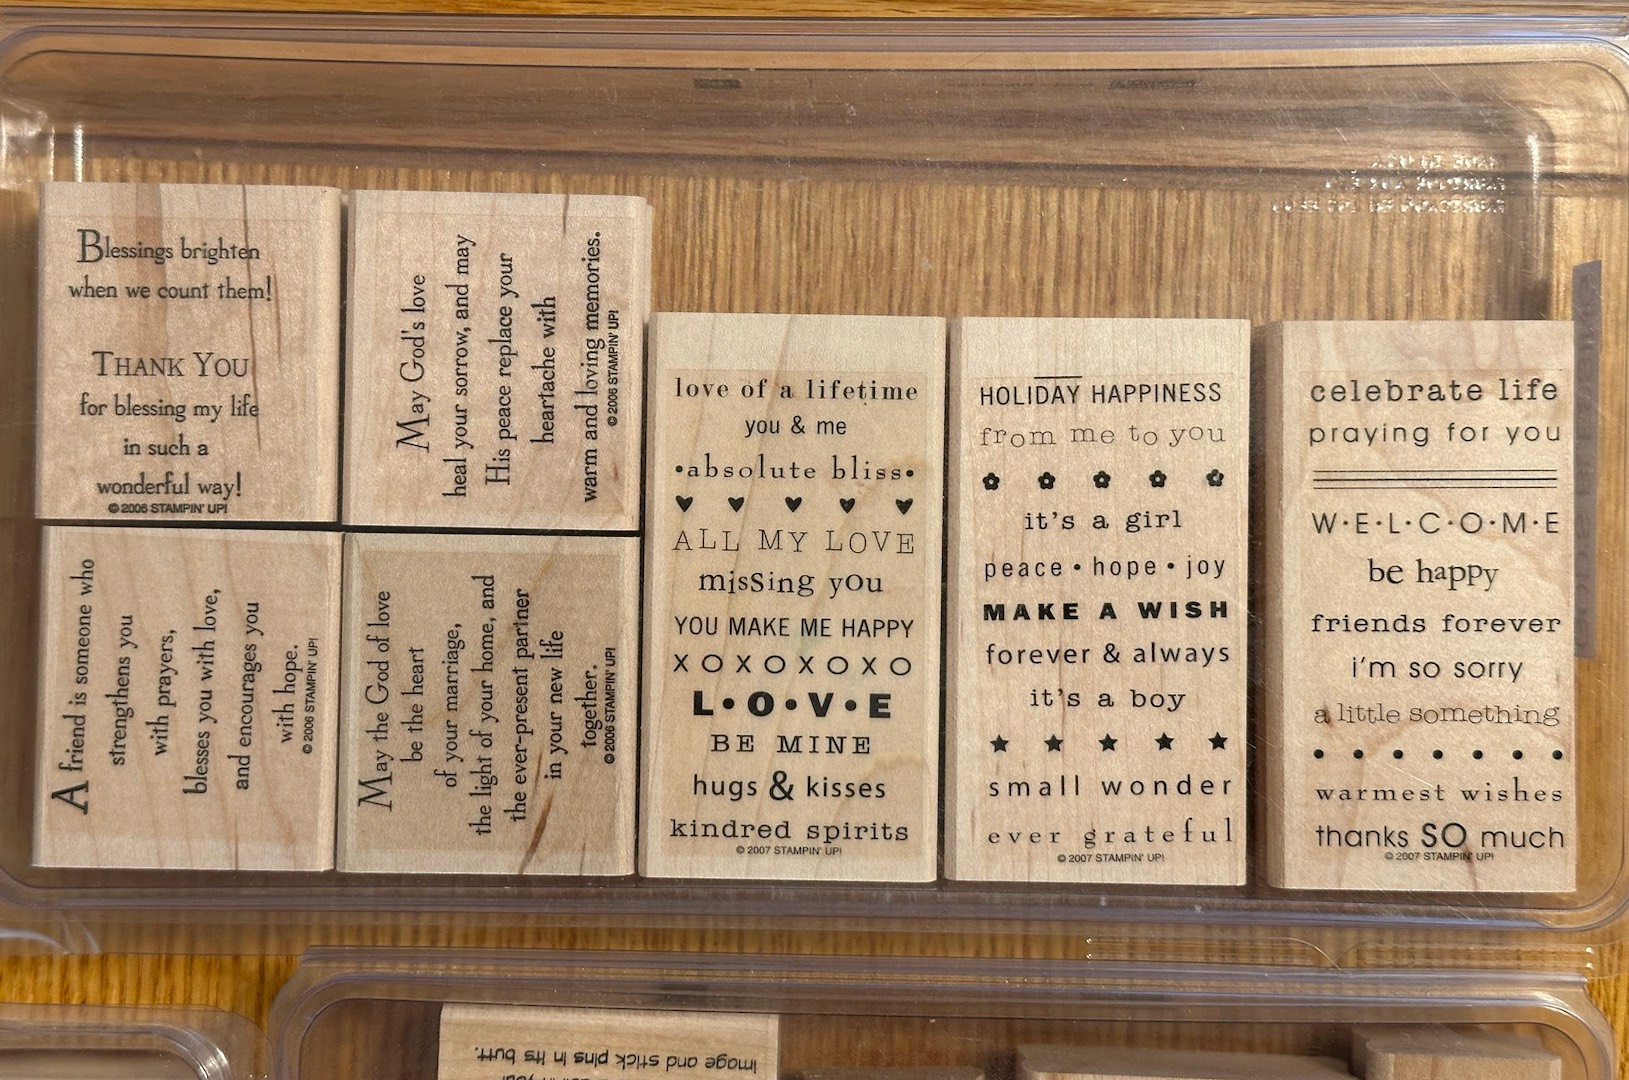 Blessings brighten
when we count them!
THANK YOU
for blessing my life
in such a
wonderful way!
© 2006 STAMPIN' UP!
May God's love
heal your sorrow, and may
His peace replace your
heartache with
warm and loving memories.
© 2006 STAMPIN' UP!
A friend is someone who
strengthens you
with prayers,
blesses you with love,
and encourages you
with hope.
© 2006 STAMPIN' UP!
May the God of love
be the heart
of your marriage,
the light of your home, and
the ever-present partner
in your new life
together.
© 2006 STAMPIN' UP!
love of a lifetime
you & me
•absolute bliss•
ALL MY LOVE
misSing yOu
YOU MAKE ME HAPPY
XOXOXOXO
L•O•V•E
BE MINE
hugs & kisses
kindred spirits
© 2007 STAMPIN' UP!
HOLIDAY HAPPINESS
from me to you
it's a girl
peace • hope • joy
MAKE A WISH
forever & always
it's a boy
small wonder
ever grateful
© 2007 STAMPIN' UP!
celebrate life
praying for you
W•E•L•C•O•M•E
be happy
friends forever
i'm so sorry
a little something
warmest wishes
thanks SO much
© 2007 STAMPIN' UP!
image and stick pins in its butt.